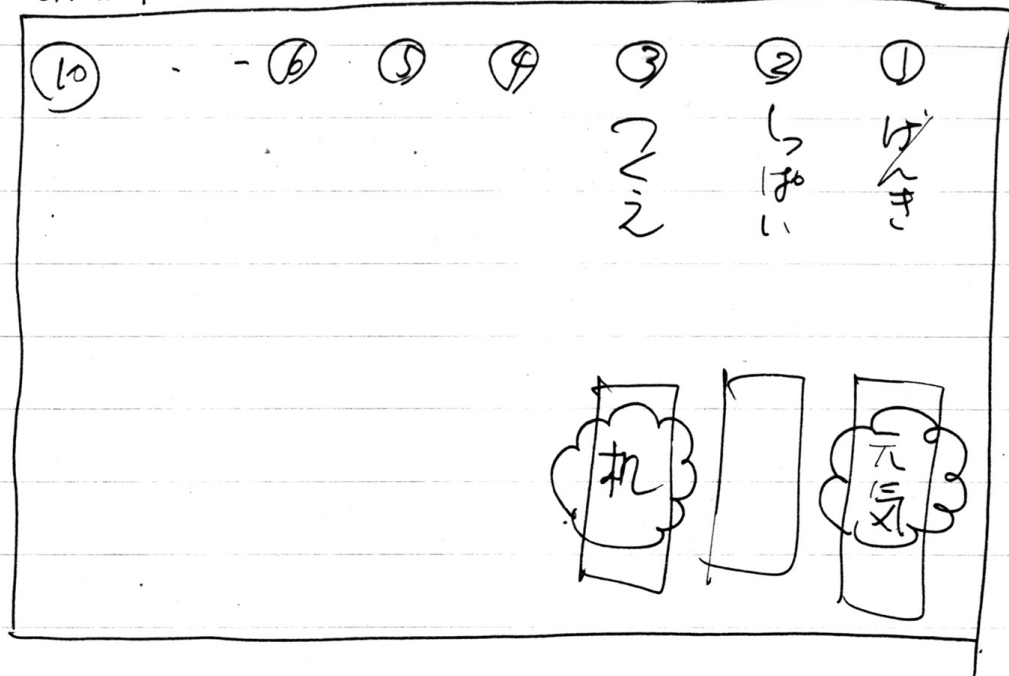 ①
げんき
元気
②
しっぱい
③
つくえ
机
④
⑤
⑥
- ・
⑩